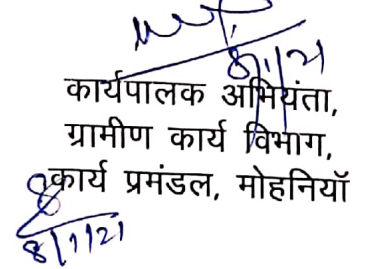 8/1/21
कार्यपालक अभियंता,
ग्रामीण कार्य विभाग,
कार्य प्रमंडल, मोहनियॉ
8/1/21